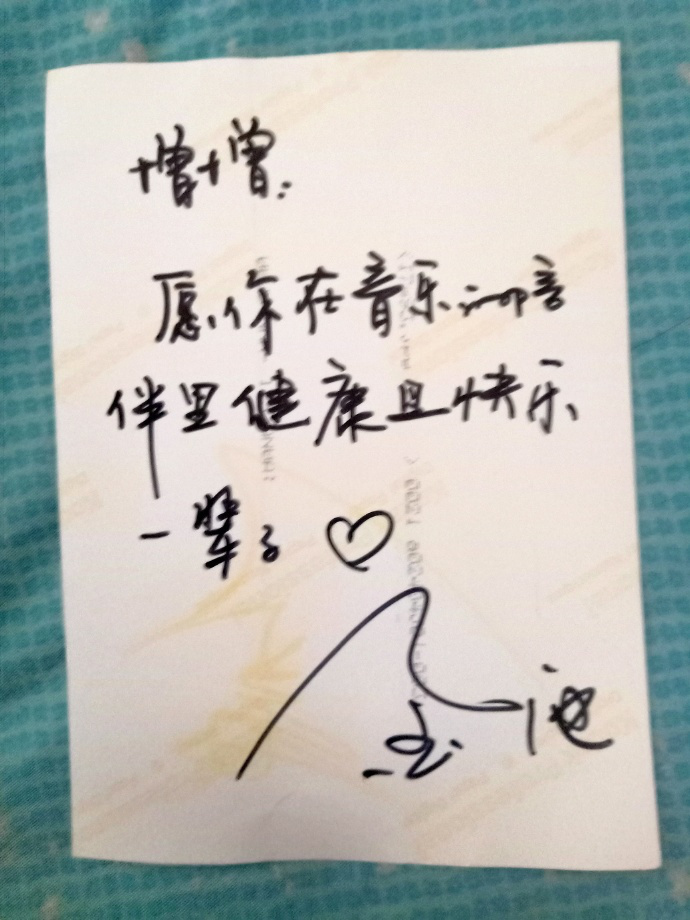 增增:
愿你在音乐的陪
伴里健康且快乐
一辈子♡
金池